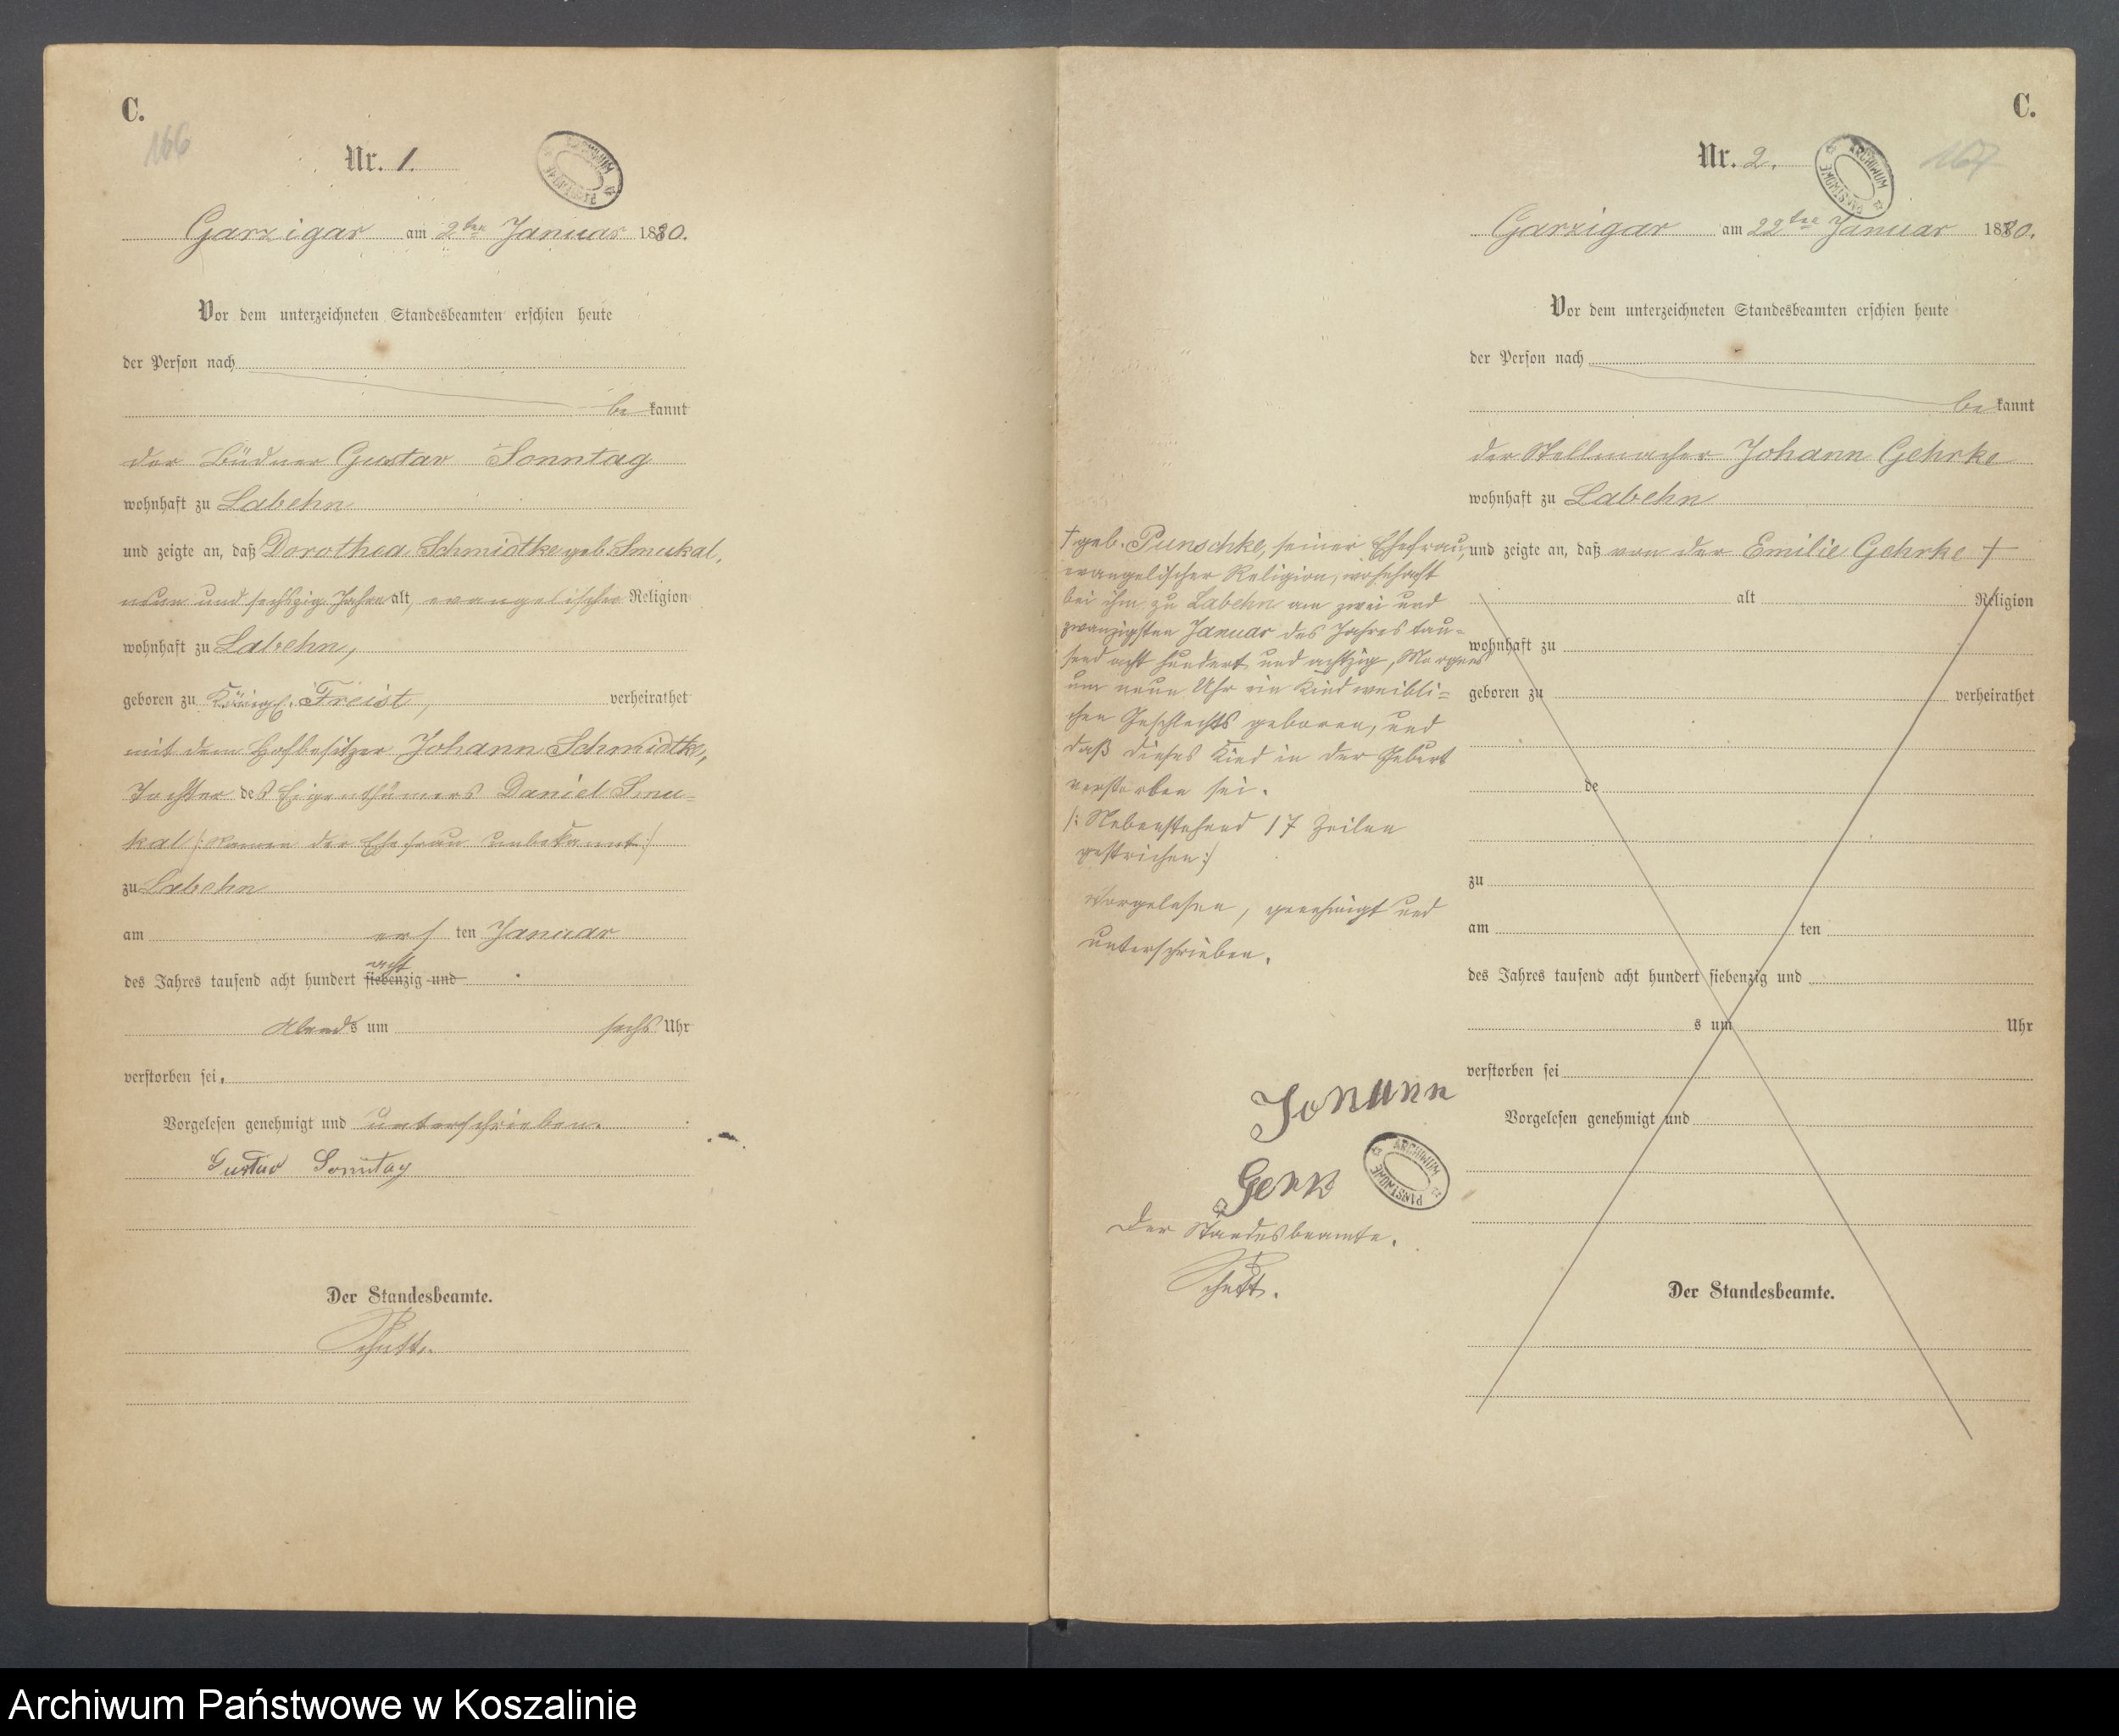 C.
166
Nr. 1.
ARCHIWUM PAŃSTWOWE
Garzigar am 2ten Januar 1880.
Vor dem unterzeichneten Standesbeamten erschien heute
der Person nach
bekannt
der Büdner Gustav Sonntag
wohnhaft zu Labehn
und zeigte an, daß Dorothea Schmidtke geb. Smukal,
neun und sechszig Jahre alt, evangelischer Religion
wohnhaft zu Labehn,
geboren zu Königl. Freist, verheirathet
mit dem Hofbesitzer Johann Schmidtke,
Tochter des Eigenthümers Daniel Smu=
kal /: Namen der Ehefrau unbekannt :/
zu Labehn
am ersten Januar
acht
des Jahres tausend acht hundert siebenzig und
Abends um sechs Uhr
verstorben sei.
Vorgelesen genehmigt und unterschrieben.
Gustav Sonntag
Der Standesbeamte.
C.
Nr. 2.
167
ARCHIWUM PAŃSTWOWE
Garzigar am 22ten Januar 1880.
Vor dem unterzeichneten Standesbeamten erschien heute
der Person nach
bekannt
der Stellmacher Johann Gehrke
wohnhaft zu Labehn
und zeigte an, daß von der Emilie Gehrke +
alt Religion
wohnhaft zu
geboren zu verheirathet
de
zu
am ten
des Jahres tausend acht hundert siebenzig und
s um Uhr
verstorben sei
Vorgelesen genehmigt und
Der Standesbeamte.
+ geb. Punschke, seiner Ehefrau,
evangelischer Religion, wohnhaft
bei ihm zu Labehn am zwei und
zwanzigsten Januar des Jahres tau=
send acht hundert und achtzig, Morgens
um neun Uhr ein Kind weibli=
chen Geschlechts geboren, und
daß dieses Kind in der Geburt
verstorben sei.
/: Nebenstehend 17 Zeilen
gestrichen :/
Vorgelesen, genehmigt und
unterschrieben.
Johann
ARCHIWUM PAŃSTWOWE
Der Standesbeamte.
Archiwum Państwowe w Koszalinie